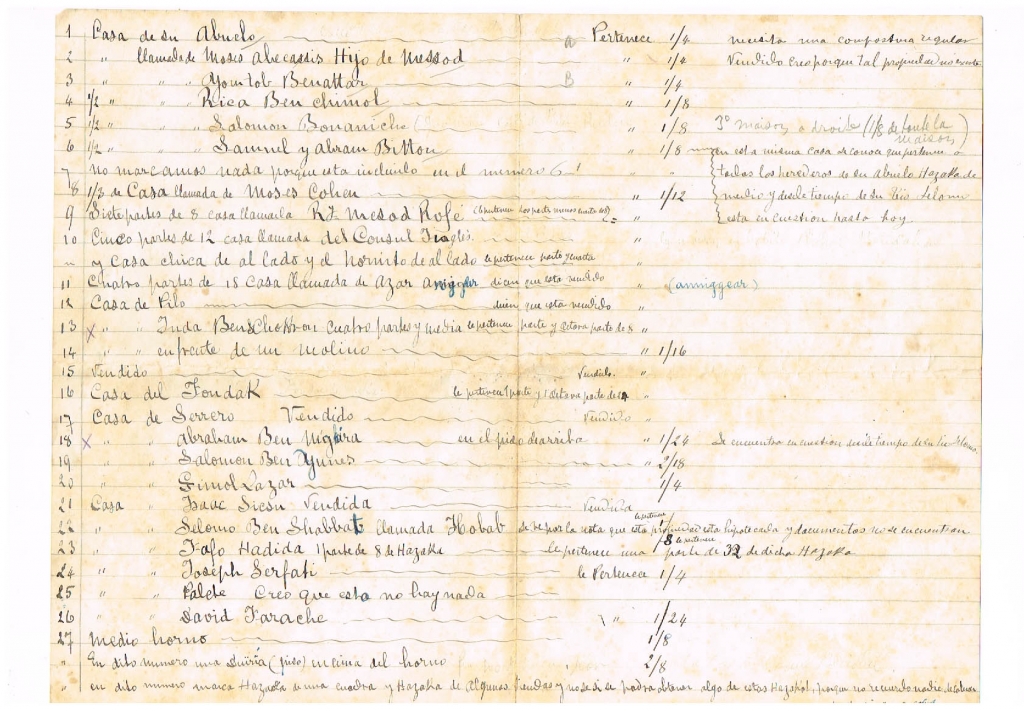 1 Casa de su Abuelo a Pertenece 1/4 necesita una compostura regular
2 " llamada de Moses Abecassis Hijo de Messod " 1/4 Vendido creo porque tal propiedad no existe
3 " " Yomtob Benattar B " 1/4
4 1/2 " " Rica Ben Chimol " 1/8
5 1/2 " " Salomon Bonaniche " 1/8 3º maison a droite (1/8 de toute la maison)
6 1/2 " " Samuel y abram Bitton " 1/8 en esta misma casa de conoce que pertenece a
7 no marcamos nada porque esta incluido en el numero 6 todos los herederos de su Abuelo Hazaka de
8 1/3 de Casa llamada de Moses Cohen " 1/12 medio y desde tiempo de su tio Selomo
9 Siete partes de 8 casa llamada Rt Mesod Rofé " esta en cuestion hasta hoy
10 Cinco partes de 12 casa llamada del Consul Ingles "
" y Casa chica de al lado y el hornito de al lado le pertenece parte y
11 Cuatro partes de 18 Casa llamada de Azar dicen que esta vendido " (amiggear)
12 Casa de Pilo dicen que esta vendido "
13 x " " Juda Ben Chokron cuatro partes y media le pertenece parte y octava parte de 8 "
14 " " enfrente de un molino " 1/16
15 Vendido Vendido "
16 Casa del Fondak le pertenece 1 parte y 1 octava parte de "
17 Casa de Serrero Vendido Vendido "
18 x " " Abraham Ben en el piso de arriba " 1/24 Se encuentra en cuestion desde tiempo de su tio Selomo.
19 " " Salomon Ben Ayunes " 2/18
20 " " Gimol Lazar 1/4
21 Casa " Isaac Sicsu Vendida Vendida
22 " " Selomo Ben Shabbat llamada Hobab se ve por la nota que esta propiedad esta hipotecada y documentos no se encuentran
23 " " Fafo Hadida 1 parte de 8 de Hazaka le pertenece una parte de 32 de dicha Hazaka
24 " " Joseph Serfati le Pertenece 1/4
25 " " Palete Creo que esta no hay nada
26 " " David Farache " " 1/24
27 Medio horno 1/8
" En dito numero una (piso) encima del horno 2/8
" en dito numero marca Hazaka de una cuadra y Hazaka de Algunas tiendas y no se si se podra obtener algo de estas Hazakot, porque no recuerdo nadie